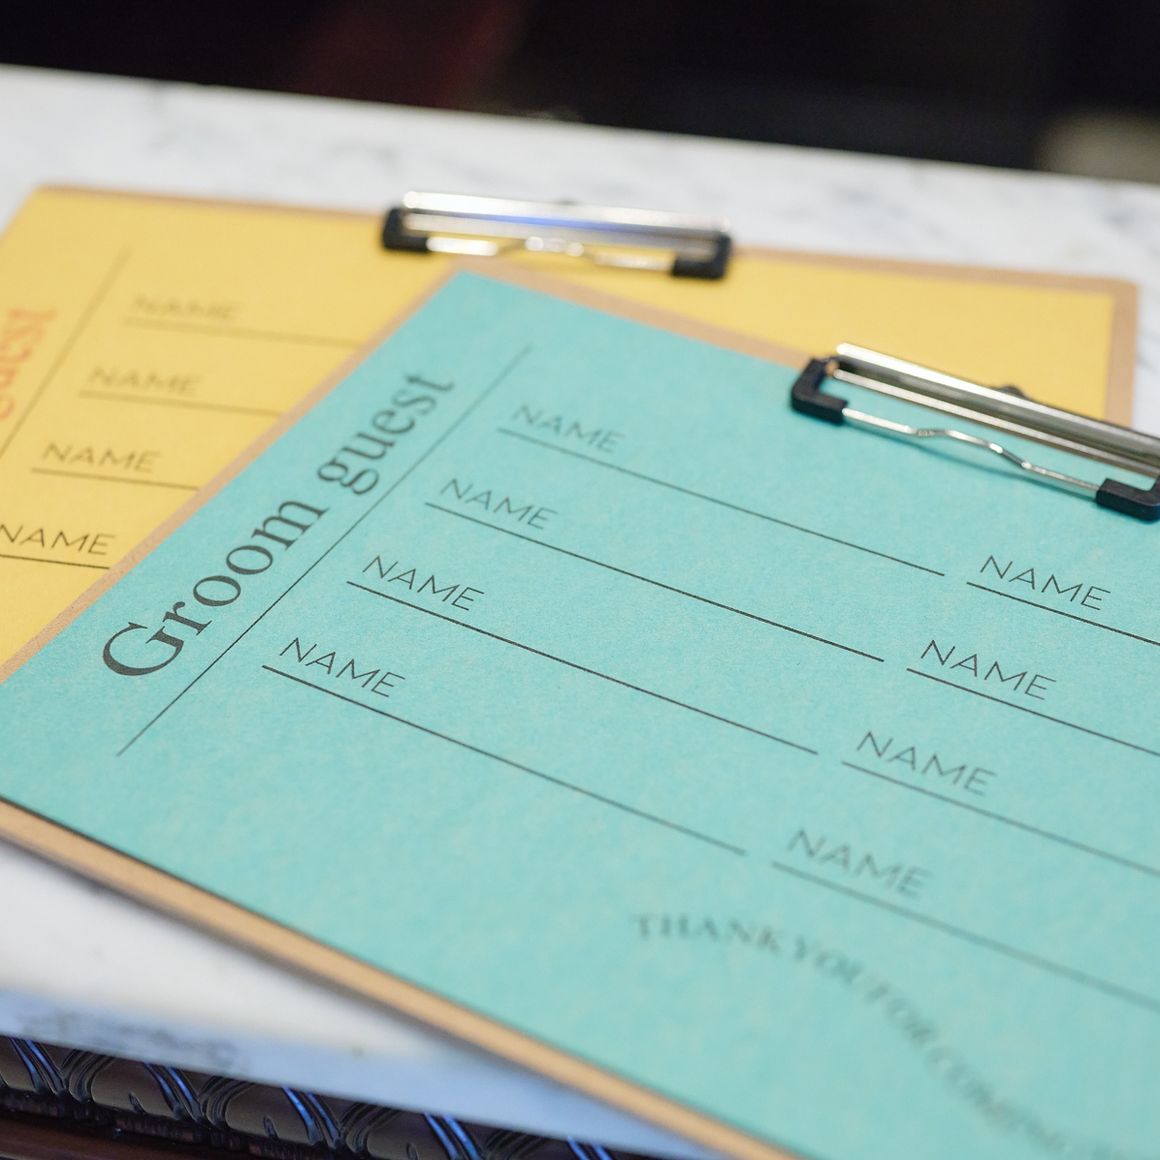 NAME
NAME
NAME
NAME
Groom guest
NAME
NAME
NAME
NAME
NAME
NAME
NAME
NAME
THANK YOU FOR COMING